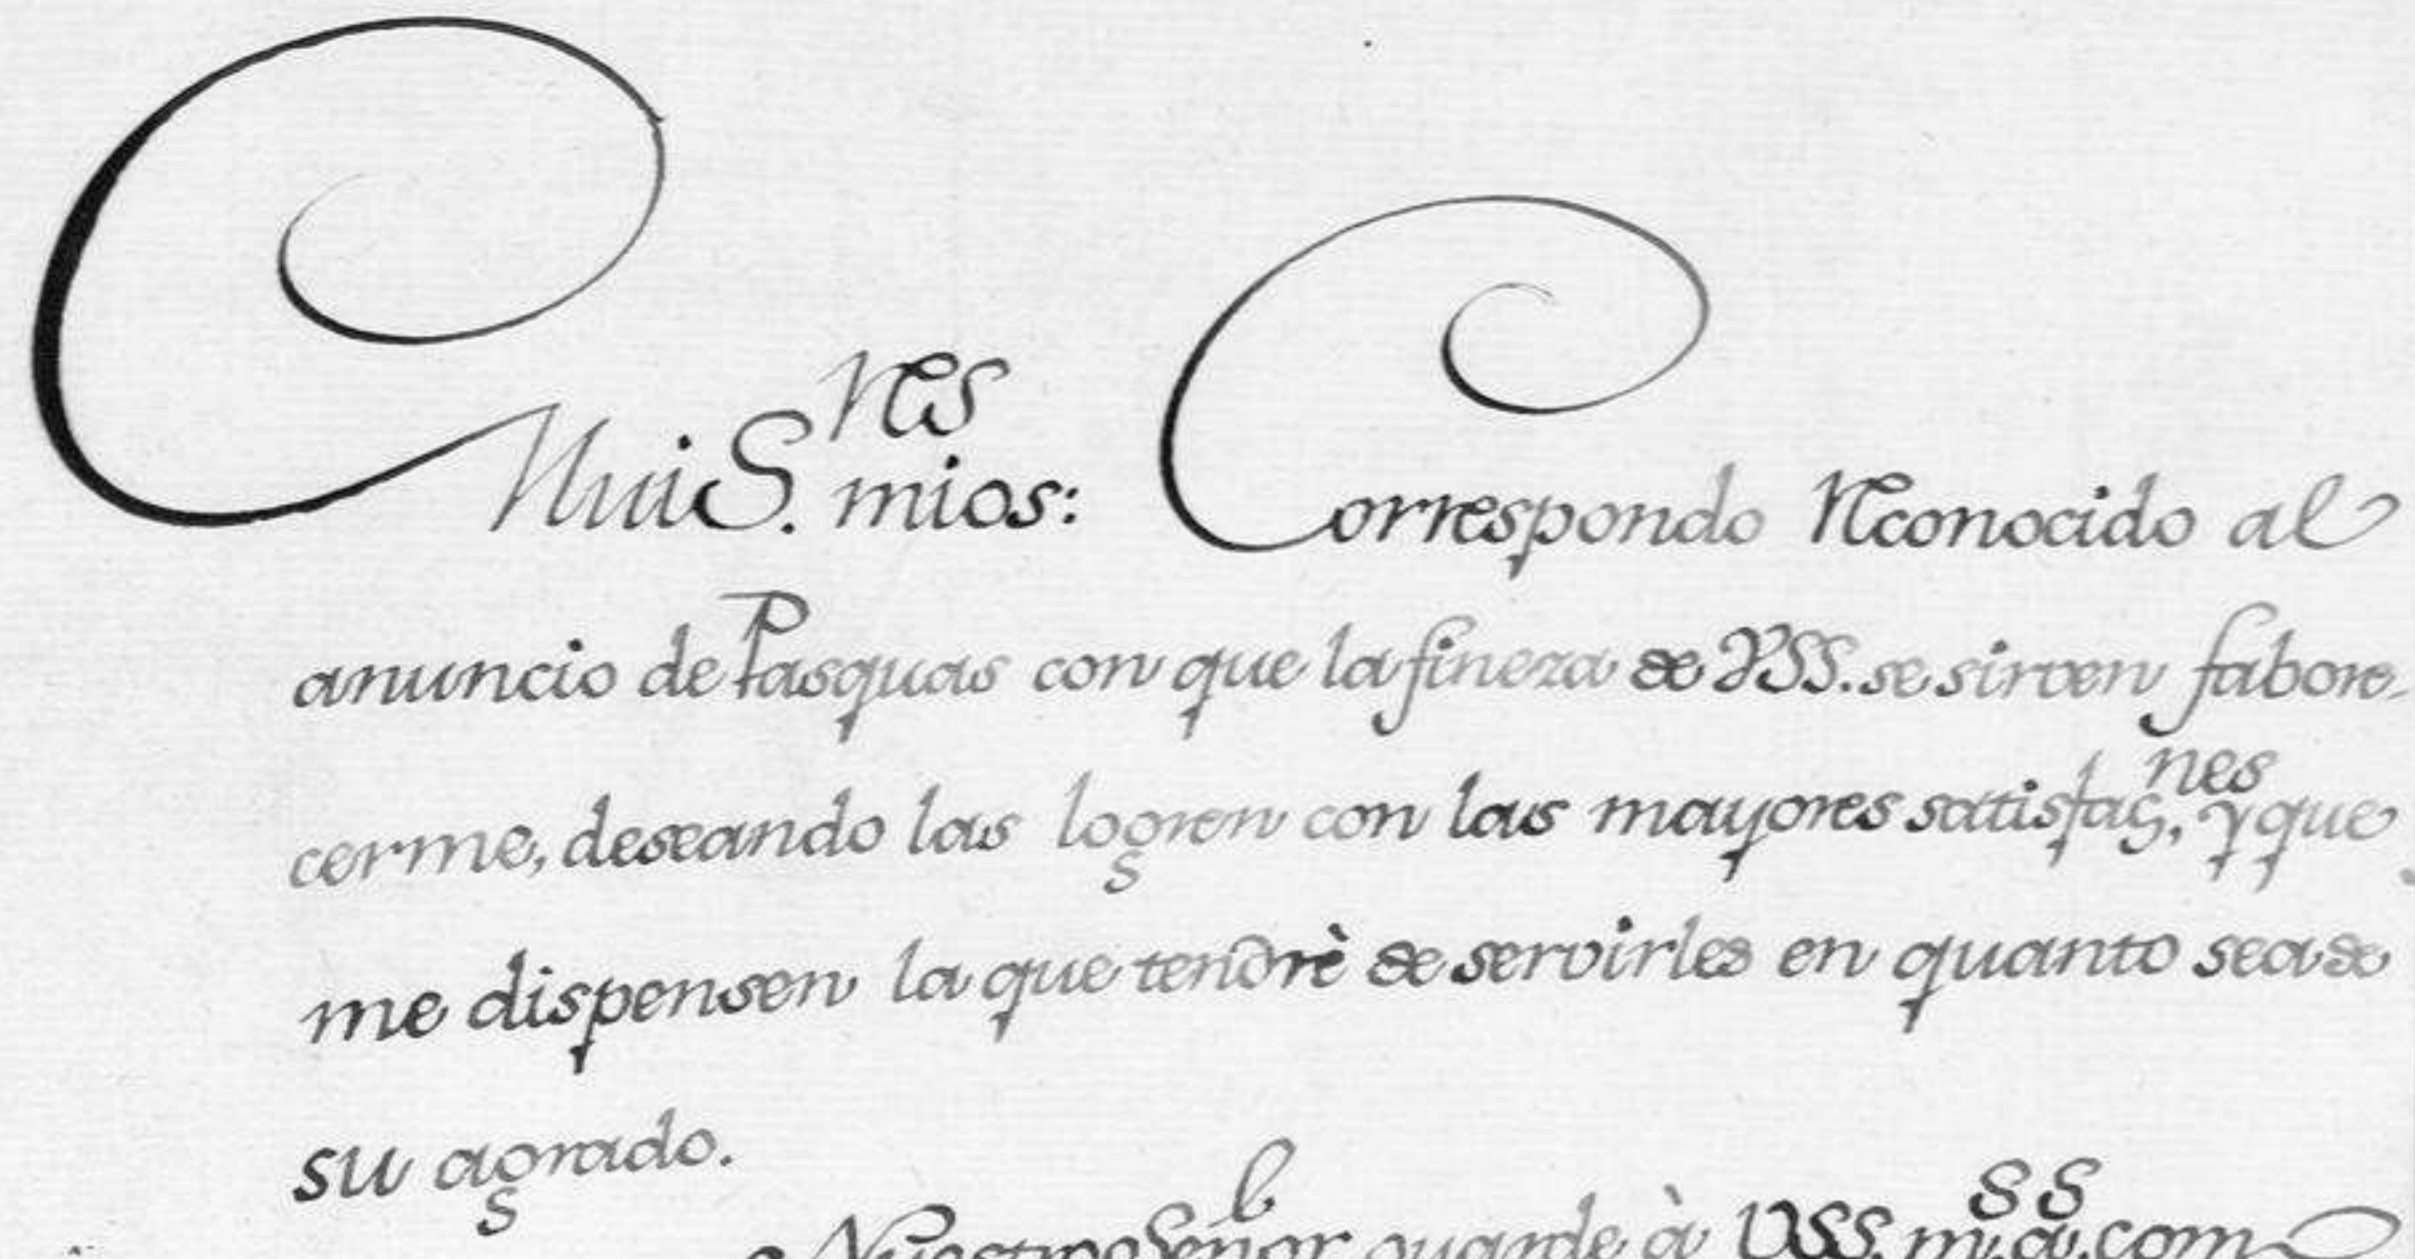 Mui S.res mios: Correspondo Reconocido al
anuncio de Pasquas con que la fineza de VSS. se sirven fabore-
cerme, deseando las logren con las mayores satisfaç.nes, y que
me dispensen la que tendrè de servirles en quanto sea de
su agrado.
Nuestro Señor guarde à VSS. m.s a.s com